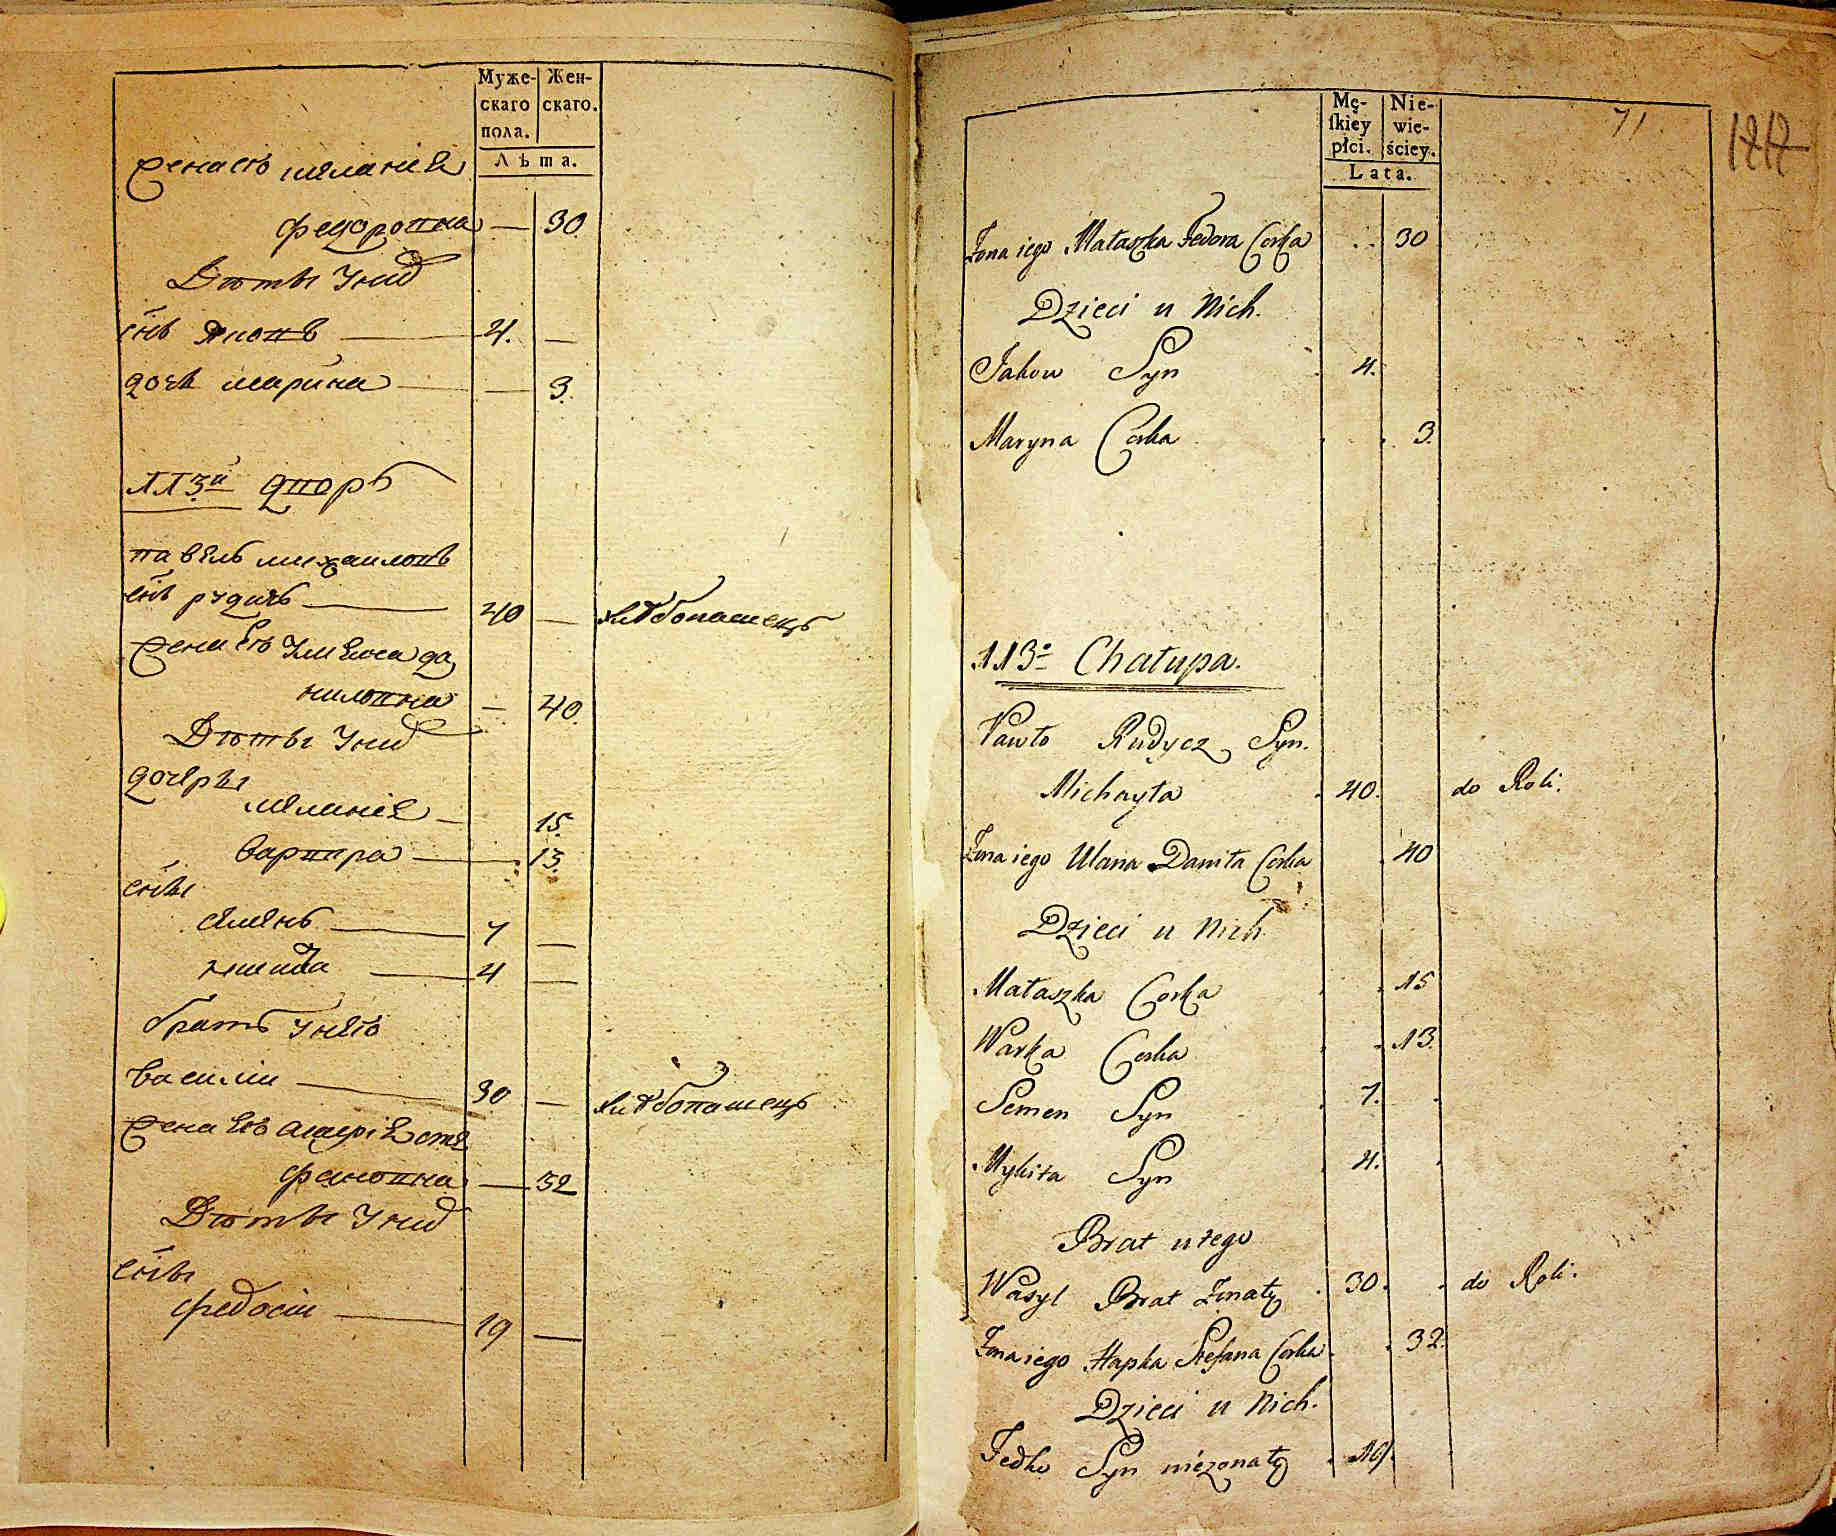 Муже-
скаго
пола.
Жен-
скаго.
Лѣта.
жена его меланiя
федоровна — 30
Дѣти у нихъ
снъ яковъ — 4. —
дочь марина — 3.
113й дворъ
павелъ михаиловъ
снъ рудичъ — 40 — хлѣбопашецъ
жена его улияна да
ниловна — 40.
Дѣти у нихъ
дочери
меланiя — 15.
варвара — 13.
сны
семенъ — 7 —
никита — 4 —
братъ у него
василии — 30 — хлѣбопашецъ
жена его агафiя сте
фановна — 32
Дѣти у нихъ
сны
федосiи — 19 —
Mę-
ſkiey
płci.
Nie-
wie-
ściey.
Lata.
71.
Żona iego Małaszka Fedora Corka 30
Dzieci u Nich.
Jakow Syn 4.
Maryna Corka 3.
113o Chałupa.
Pawło Rudycz Syn.
Michayła 40. do Roli.
Żona iego Ulana Daniła Corka 40
Dzieci u Nich
Małaszka Corka 15
Warka Corka 13.
Semen Syn 7.
Mykita Syn 4.
Brat u tego
Wasyl Brat Żonaty 30. do Roli.
Żona iego Hapka Stefana Corka 32.
Dzieci u Nich.
Fedko Syn nieżonaty 19.